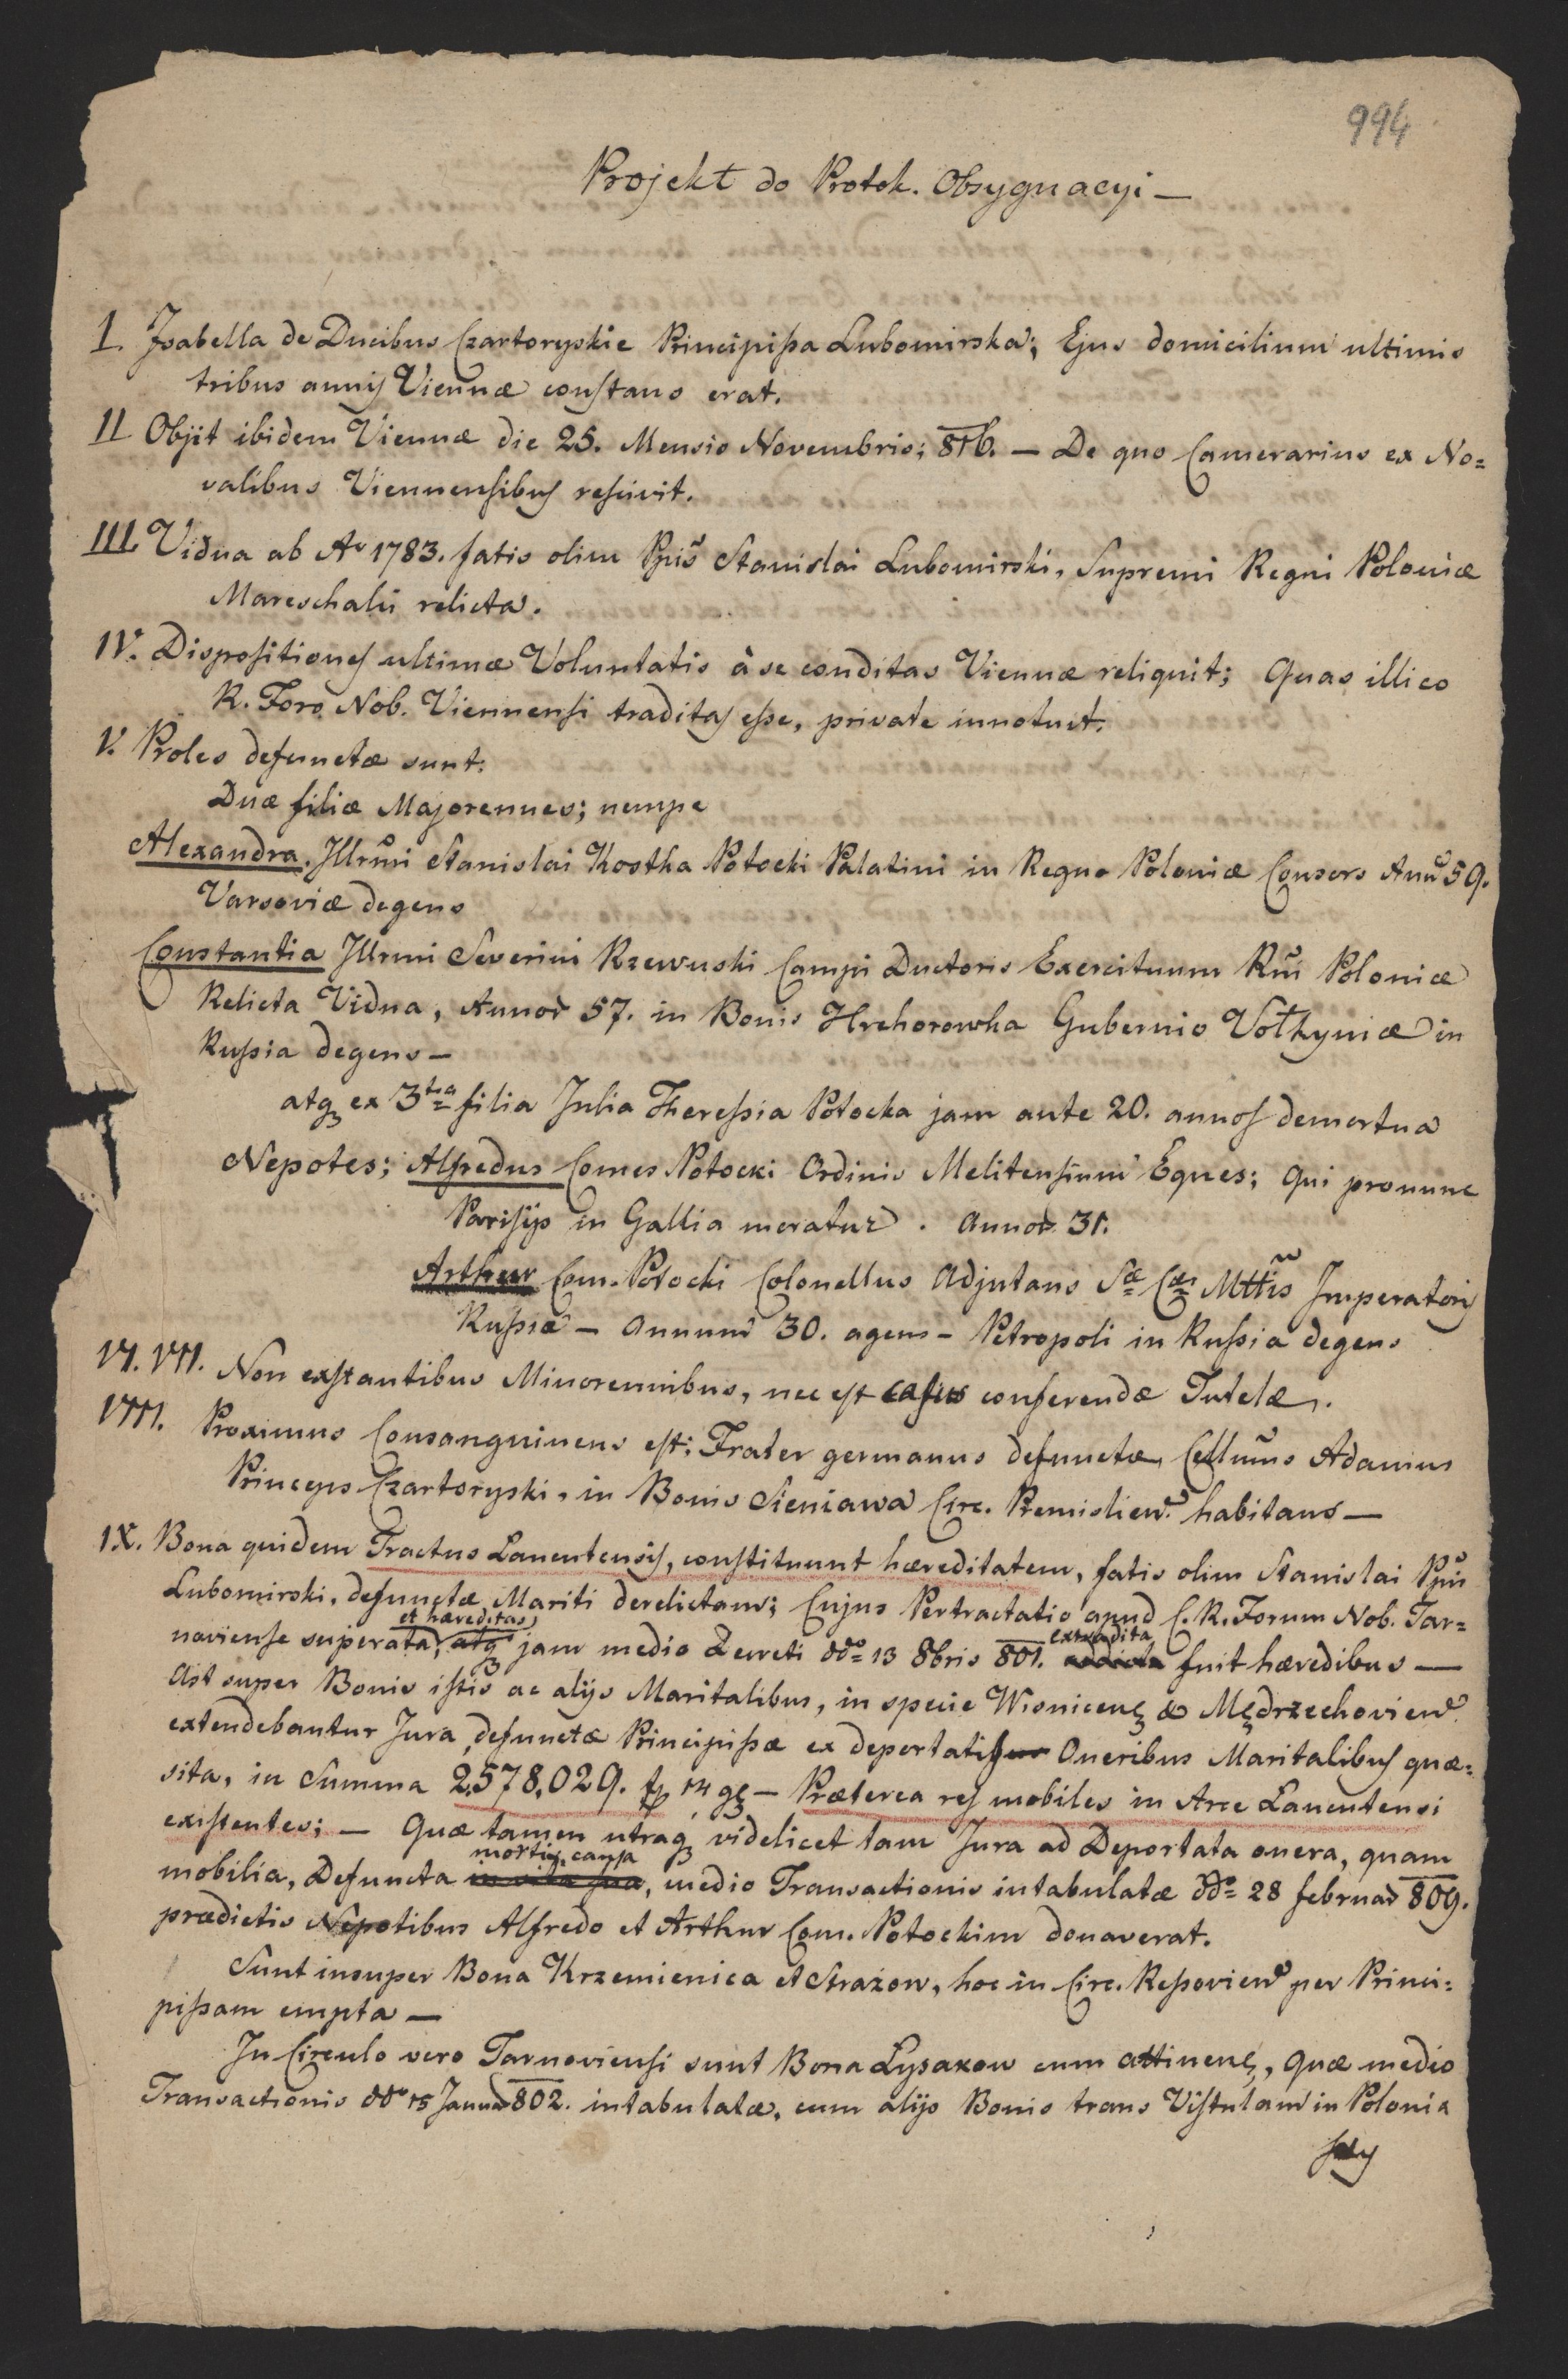 994
Projekt do Protok. Obsygnacyi —
I. Isabella de Ducibus Czartoryskie Principissa Lubomirska; Ejus domicilium ultimis
tribus annis Viennæ constans erat.
II Objit ibidem Viennæ die 25. Mensis Novembris; 816. — De quo Camerarius ex No=
valibus Viennensibus rescivit.
III. Vidua ab Ao 1783. fatis olim Ppis Stanislai Lubomirski, Supremi Regni Poloniæ
Mareschalii relicta.
IV. Dispositiones ultimæ Voluntatis à se conditas Viennæ reliquit; Quas illico
R. Foro Nob. Viennensi traditas esse, private innotuit.
V. Proles defunctæ sunt:
Duæ filiæ Majorennes; nempe
Alexandra. Illrmi Stanislai Kostka Potocki Palatini in Regno Poloniæ Consors Annu 59.
Varsoviæ degens
Constantia Illrmi Severini Rzewuski Campi Ductoris Exercituum Rni Poloniæ
Relicta Vidua, Annor 57. in Bonis Hrehorowka Gubernio Vołhyniæ in
Russia degens —
atq ex 3tia filia Julia Theressia Potocka jam ante 20. annos demortua
Nepotes; Alfredus Comes Potocki Ordinis Melitensium Eques; qui pronunc
Parisijs in Gallia moratur. Annor 31.
Arthur Com. Potocki Colonellus Adjutans Sæ Cæs Mttis Imperatoris
Russiæ — Annum 30. agens — Petropoli in Russia degens
VI. VII. Non exstantibus Minorennibus, nec est casus conferendæ Tutelæ.
VIII. Proximus Consanguineus est: Frater germanus defunctæ, Cellmus Adamus
Princeps Czartoryski, in Bonis Sieniawa Circ. Premislien. habitans —
IX. Bona quidem Tractus Lancutensis, constituunt hæreditatem, fatis olim Stanislai Ppis
Lubomirski, defunctæ Mariti derelictam; Cujus Pertractatio apud C. R. Forum Nob. Tar=
et hæreditas extradita
noviense superata, atq jam medio Decreti ddo 13 8bris 801. fuit hæredibus —
Ast super Bonis istis ac alijs Maritalibus, in specie Wisnicens & Mędrzechovien
extendebantur Jura, defunctæ Principissæ ex deportatis Oneribus Maritalibus quæ=
sita, in Summa 2,578,029. fp 14 gs — Præterea res mobiles in Arce Lancutensi
existentes; — Quæ tamen utraq videlicet tam Jura ad Deportata onera, quam
mortis causa
mobilia, Defuncta in vita sua, medio Transactionis intabulatæ ddo 28 februar 809.
prædictis Nepotibus Alfredo et Arthur Com. Potockim donaverat.
Sunt insuper Bona Krzemienica et Strażow, hoc in Circ. Ressovien per Princi=
pissam empta —
In Circulo vero Tarnoviensi sunt Bona Lysakow cum attinens, quæ medio
Transactionis ddo 15 Januar 802. intabulatæ, cum alijs Bonis trans Vistulam in Polonia